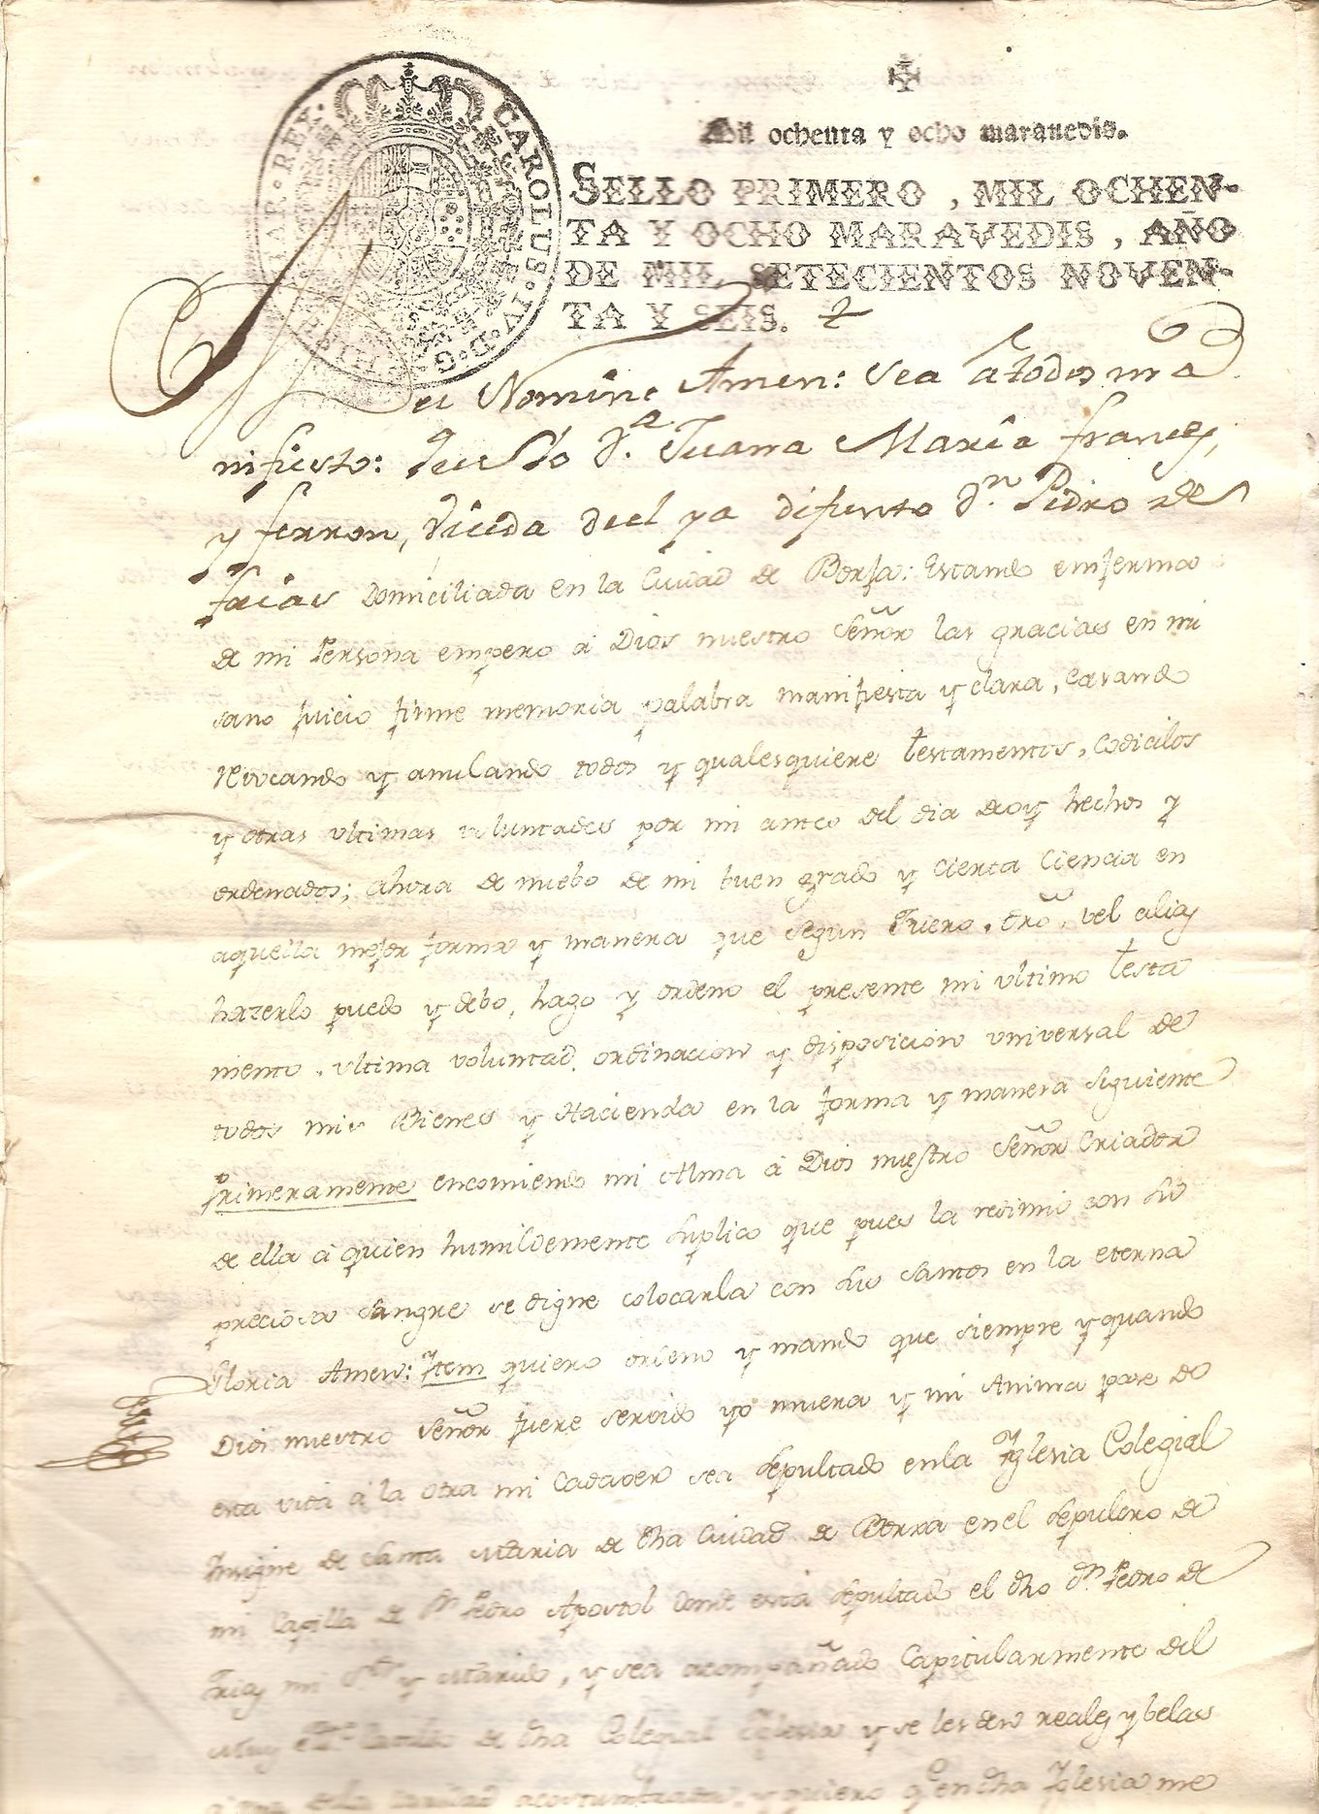 CAROLUS · IV · D · G · HISP
IAR · REX ·
Mil ochenta y ocho maravedis.
SELLO PRIMERO, MIL OCHEN-
TA Y OCHO MARAVEDIS, AÑO
DE MIL SETECIENTOS NOVEN-
TA Y SEIS.
Dei Nomine Amen: Sea â todos ma
nifiesto: que Yo D.ª Juana Maria frances,
y ferron, Viuda deel ya difunto D.n Pedro de
frias Domiciliada en la Ciudad de Borja: Estando enferma
de mi Persona empero â Dios nuestro Señor las gracias en mi
sano juicio firme memoria palabra manifiesta y clara, Casando
Revocando y anulando todos y qualesquiere testamentos, Codicilos
y otras ultimas voluntades por mi antes del dia de oy hechos y
ordenados; ahora de nuebo de mi buen grado y cierta Ciencia en
aquella mejor forma y manera que segun Fuero, dro, vel alias
hazerlo puedo y debo, hago y ordeno el presente mi ultimo testa
mento, ultima voluntad, ordinacion y disposicion universal de
todos mis Bienes y Hacienda en la forma y manera siguiente
Primeramente encomiendo mi Alma â Dios nuestro Señor Criador
de ella â quien humildemente suplico que pues la redimio con su
preciosa sangre se digne colocarla con sus santos en la eterna
Gloria Amen: Item quiero ordeno y mando que siempre y quando
Dios nuestro Señor fuere servido yo muera y mi Anima pase de
esta vida â la otra mi Cadaver sea sepultado en la Iglesia Colegial
Insigne de Santa Maria de dha Ciudad de Borxa en el sepulcro de
mi Capilla de Sn Pedro Apostol donde está sepultado el dho Dn Pedro de
Frias mi Sor y Marido, y sea acompañado Capitularmente del
Muy de dha Colegial Iglesia y se les den reales y belas
acostumbrada, y quiero q en dha Iglesia me